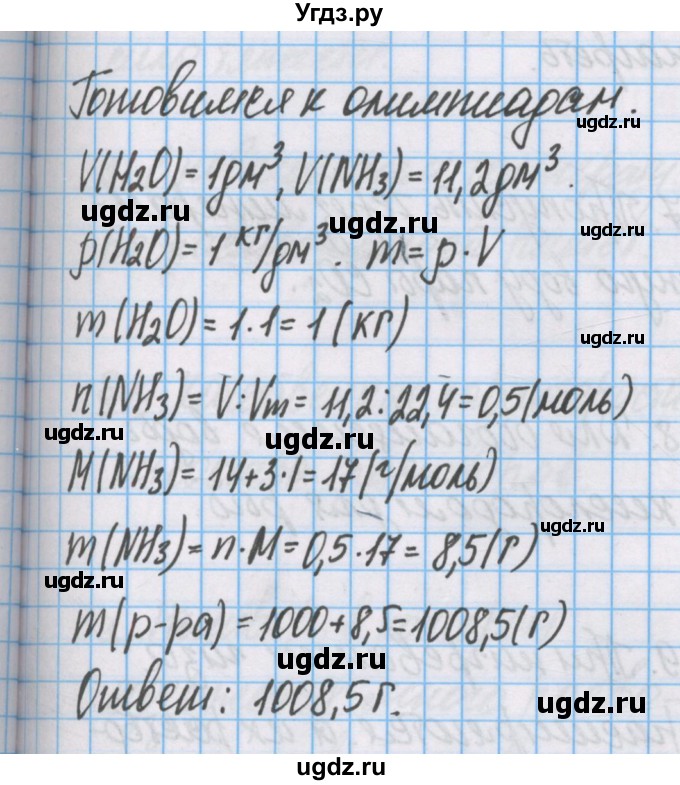 Угдз.ру
Готовимся к олимпиадам.
ugdz.ru
V(H₂O) = 1дм³, V(NH₃) = 11,2дм³.
ugdz.ru ugdz.ru
ρ(H₂O) = 1 кг/дм³. m = ρ · V
ugdz.ru
m(H₂O) = 1 · 1 = 1 (кг)
ugdz.ru
n(NH₃) = V : Vm = 11,2 : 22,4 = 0,5 (моль)
ugdz.ru ugdz.ru ugdz.ru
M(NH₃) = 14 + 3 · 1 = 17 (г/моль)
ugdz.ru
m(NH₃) = n · M = 0,5 · 17 = 8,5 (г)
ugdz.ru ugdz.ru
m(р-ра) = 1000 + 8,5 = 1008,5 (г)
ugdz.ru
Ответ: 1008,5 г.
ugdz.ru
ugdz.ru